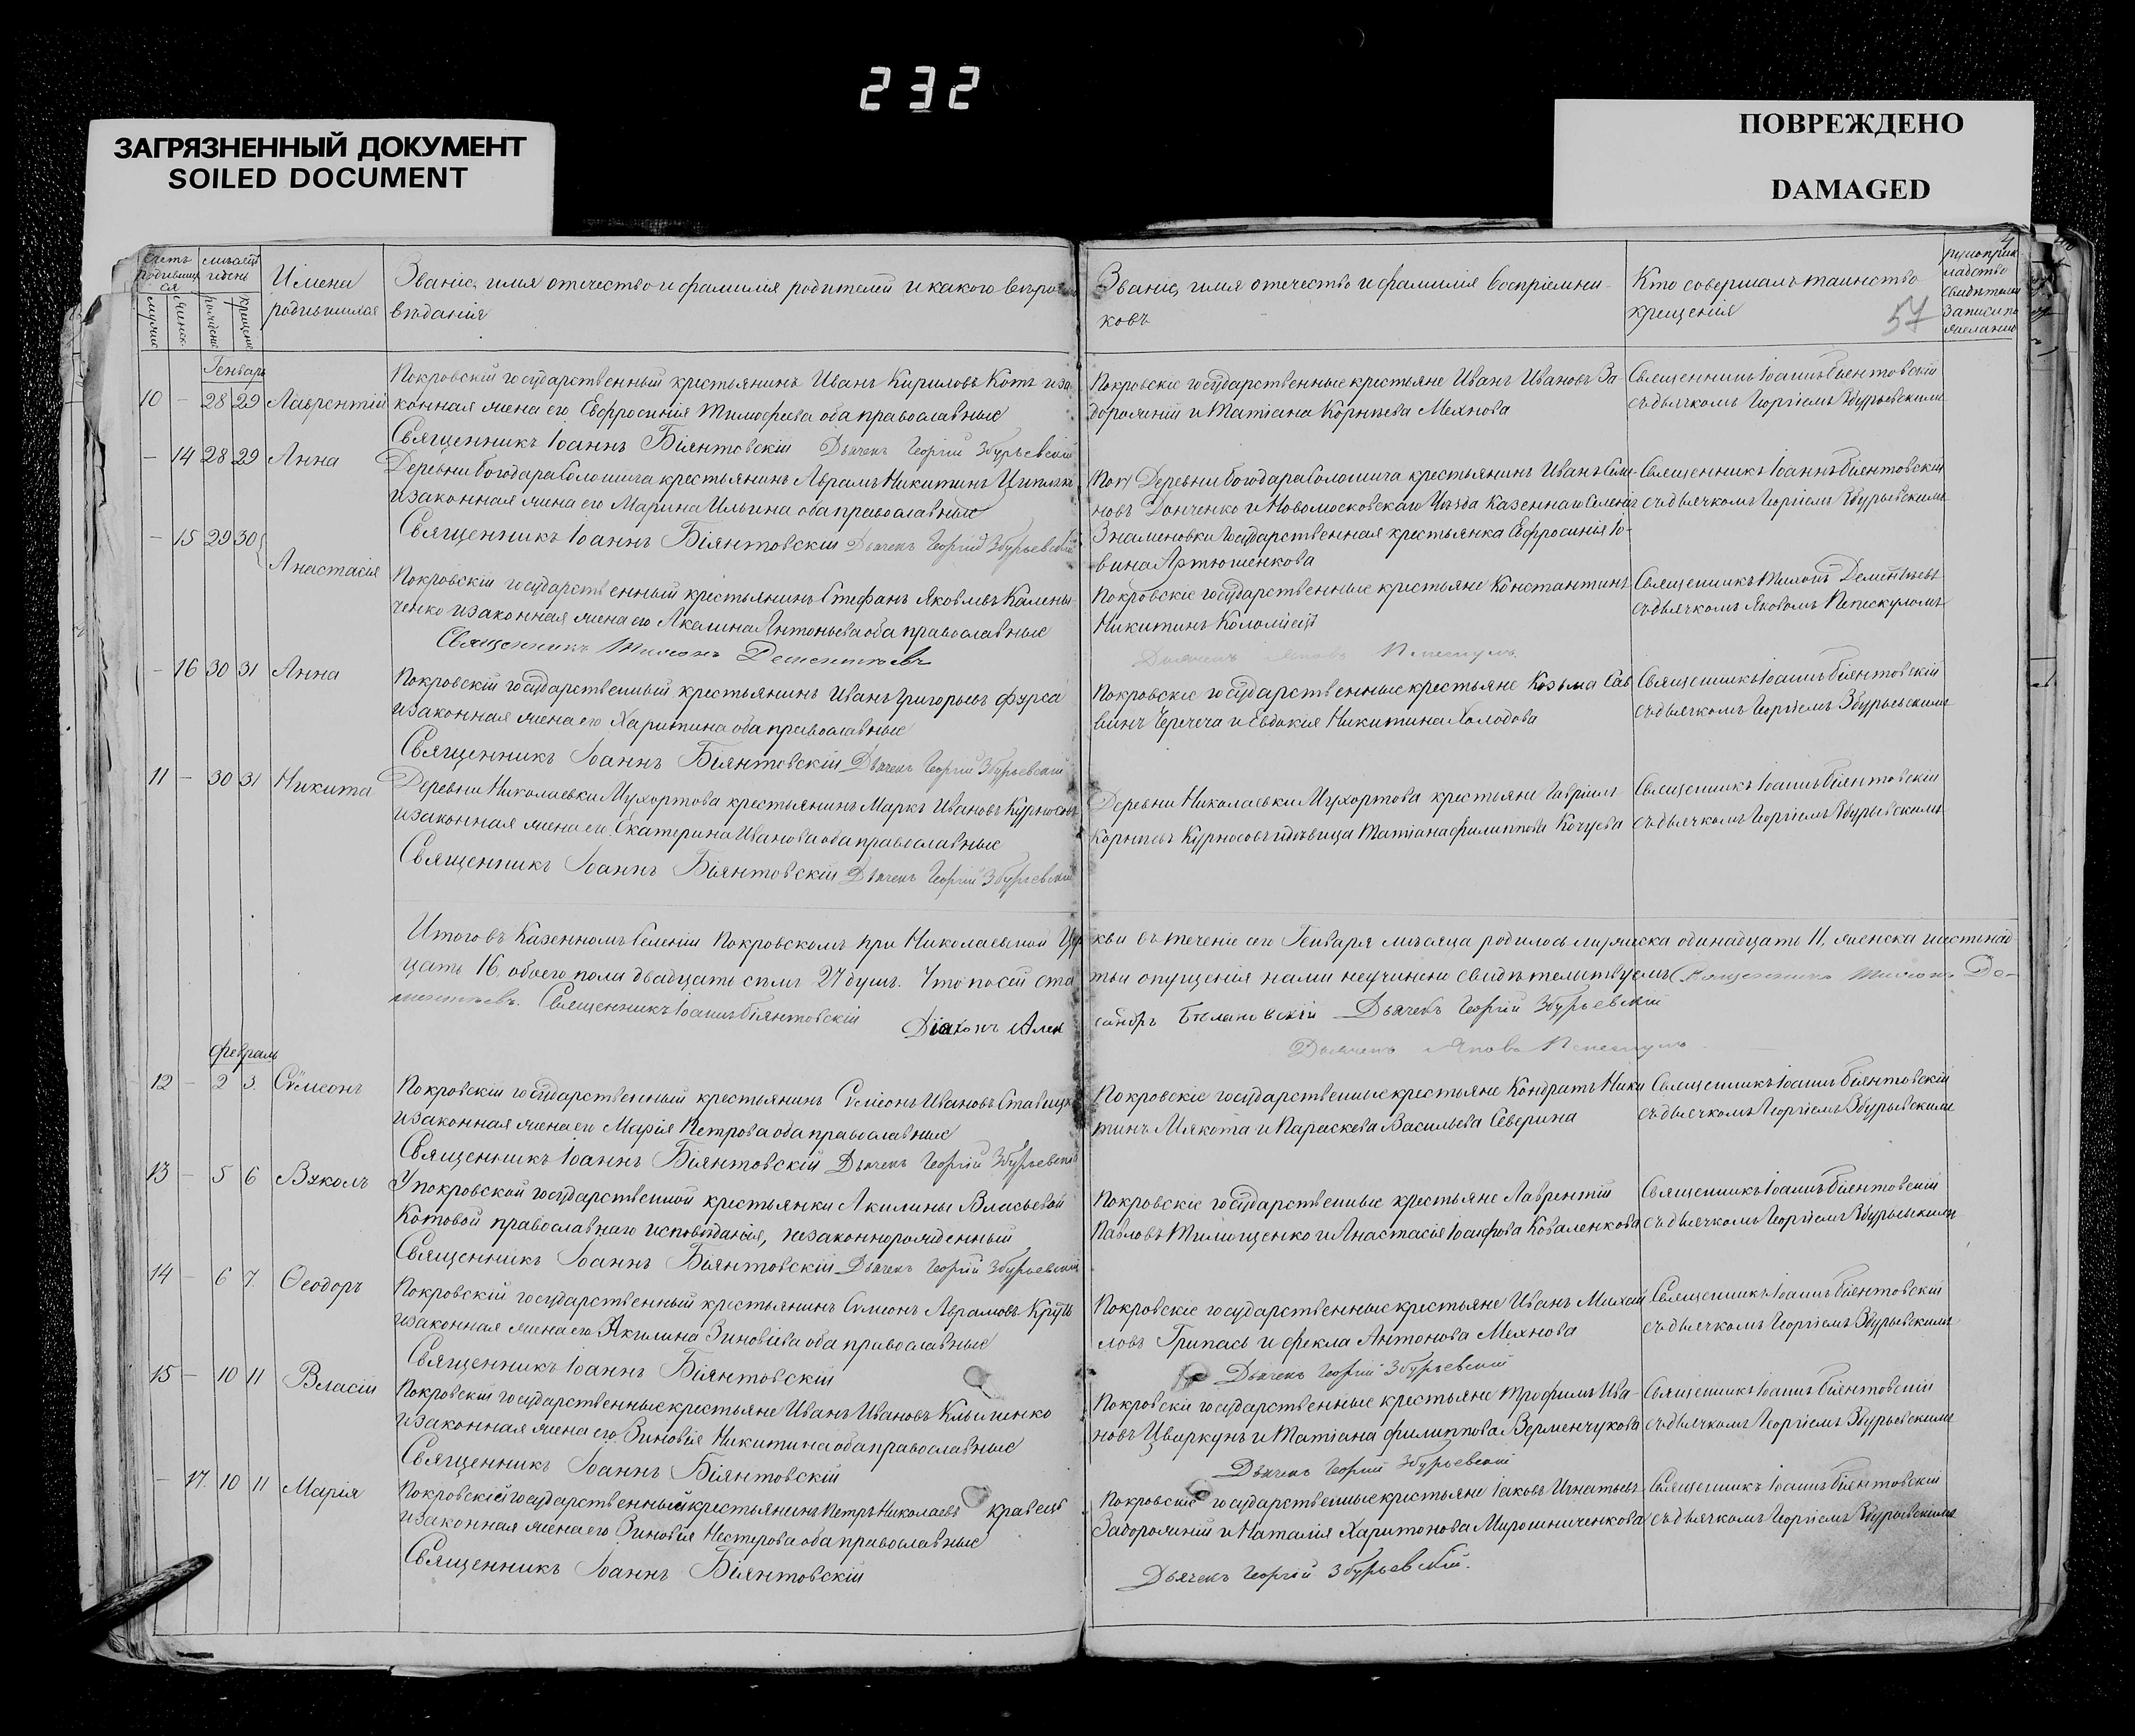 232
ЗАГРЯЗНЕННЫЙ ДОКУМЕНТ
SOILED DOCUMENT
ПОВРЕЖДЕНО
DAMAGED
4
57
Счетъ родившихся
мѣсяцъ и день
Имена родившихся
Званіе, имя отечество и фамилія родителей и какого вѣроис
вѣданія
Званіе, имя отечество и фамилія воспріемни-
ковъ
Кто совершалъ таинство
крещенія
рукоприкладство свидѣтелей записи по желанію
Генварь
10 - 28 29 Лаврентій
Покровскій государственный крестьянинъ Иванъ Кириловъ Котъ и за
конная жена его Евфросинія Тимофеева оба православные
Священникъ Іоаннъ Біянтовскій Дьячекъ Георгій Збурьевскій
Покровскіе государственные крестьяне Иванъ Ивановъ За-
дорожній и Татіана Корнѣева Мехнова
Священникъ Іоаннъ Біянтовскій
съ дьячкомъ Георгіемъ Збурьевскимъ
- 14 28 29 Анна
Деревни Богодара крестьянинъ Аврамъ Никитинъ
и законная жена его Марина Ильина оба православные
Священникъ Іоаннъ Біянтовскій Дьячекъ Георгій Збурьевскій
Деревни Богодара крестьянинъ Иванъ Семе-
новъ Донченко и Новомосковскаго Уѣзда Казеннаго Селенія
Знаменовки Государственная крестьянка Евфросинія Іо-
вина Артюшенкова
Священникъ Іоаннъ Біянтовскій
съ дьячкомъ Георгіемъ Збурьевскимъ
- 15 29 30 Анастасія
Покровскій государственный крестьянинъ Стефанъ Яковлевъ Калены-
ченко и законная жена его Акилина Антоньева оба православные
Священникъ Тимонъ Дементьевъ
Покровскіе государственные крестьяне Константинъ
Никитинъ Коломіецъ
Дьячекъ Яковъ Пепескулъ
Священникъ Тимонъ Дементьевъ
съ дьячкомъ Яковомъ Пепескуломъ
- 16 30 31 Анна
Покровскій государственный крестьянинъ Иванъ Григорьевъ Фурса
и законная жена его Харитина оба православные
Священникъ Іоаннъ Біянтовскій Дьячекъ Георгій Збурьевскій
Покровскіе государственные крестьяне Козьма Сав
винъ Черечеча и Евдокія Никитина Холодова
Священникъ Іоаннъ Біянтовскій
съ дьячкомъ Георгіемъ Збурьевскимъ
11 - 30 31 Никита
Деревни Николаевки Мухортова крестьянинъ Маркъ Ивановъ Курносовъ
и законная жена его Екатерина Иванова оба православные
Священникъ Іоаннъ Біянтовскій Дьячекъ Георгій Збурьевскій
Деревни Николаевки Мухортова крестьяне Гавріилъ
Корнѣевъ Курносовъ и дѣвица Татіана Филиппова Кочуева
Священникъ Іоаннъ Біянтовскій
съ дьячкомъ Георгіемъ Збурьевскимъ
Итого въ Казенномъ Селеніи Покровскомъ при Николаевской Цер кви въ теченіе сего Генваря мѣсяца родилось мужеска одинадцать 11, женска шестьнад
цать 16. обоего пола двадцать семь 27 душъ. Что по сей ста тьи опущенія нами неучинено свидѣтельствуемъ Священникъ Тимонъ Де-
ментьевъ. Священникъ Іоаннъ Біянтовскій
Діаконъ Алек сандръ Дьячекъ Георгій Збурьевскій
Дьячекъ Яковъ Пепескулъ
Февраль
12 - 2 3 Сѵмеонъ
Покровскій государственный крестьянинъ Сѵмеонъ Ивановъ
и законная жена его Марія Петрова оба православные
Священникъ Іоаннъ Біянтовскій Дьячекъ Георгій Збурьевскій
Покровскіе государственные крестьяне Кондратъ Ники
тинъ Мякота и Параскева Васильева Северина
Священникъ Іоаннъ Біянтовскій
съ дьячкомъ Георгіемъ Збурьевскимъ
13 - 5 6 Вѵколъ
У покровской государственной крестьянки Акилины Власьевой
Котовой православнаго исповѣданія, незаконнорожденный
Священникъ Іоаннъ Біянтовскій Дьячекъ Георгій Збурьевскій
Покровскіе государственные крестьяне Лаврентій
Павловъ Тимощенко и Анастасія Іосифова Коваленкова
Священникъ Іоаннъ Біянтовскій
съ дьячкомъ Георгіемъ Збурьевскимъ
14 - 6 7 Ѳеодоръ
Покровскій государственный крестьянинъ Сѵмеонъ Аврамовъ
и законная жена его Акилина Зиновіева оба православные
Священникъ Іоаннъ Біянтовскій
Покровскіе государственные крестьяне Иванъ Михай
ловъ Грипась и Фекла Антонова Мехнова
Дьячекъ Георгій Збурьевскій
Священникъ Іоаннъ Біянтовскій
съ дьячкомъ Георгіемъ Збурьевскимъ
15 - 10 11 Власій
Покровскіи государственные крестьяне Иванъ Ивановъ
и законная жена его Зиновія Никитина оба православные
Священникъ Іоаннъ Біянтовскій
Покровскіе государственные крестьяне Трофимъ Ива-
новъ Цвиркунъ и Татіана Филиппова Верменчукова
Дьячекъ Георгій Збурьевскій
Священникъ Іоаннъ Біянтовскій
съ дьячкомъ Георгіемъ Збурьевскимъ
- 17 10 11 Марія
Покровскій государственный крестьянинъ Петръ Николаевъ Кравецъ
и законная жена его Зиновія Нестерова оба православные
Священникъ Іоаннъ Біянтовскій
Покровскіе государственные крестьяне Іаковъ Игнатьевъ
Задорожній и Наталія Харитонова Мирошниченкова
Дьячекъ Георгій Збурьевскій.
Священникъ Іоаннъ Біянтовскій
съ дьячкомъ Георгіемъ Збурьевскимъ